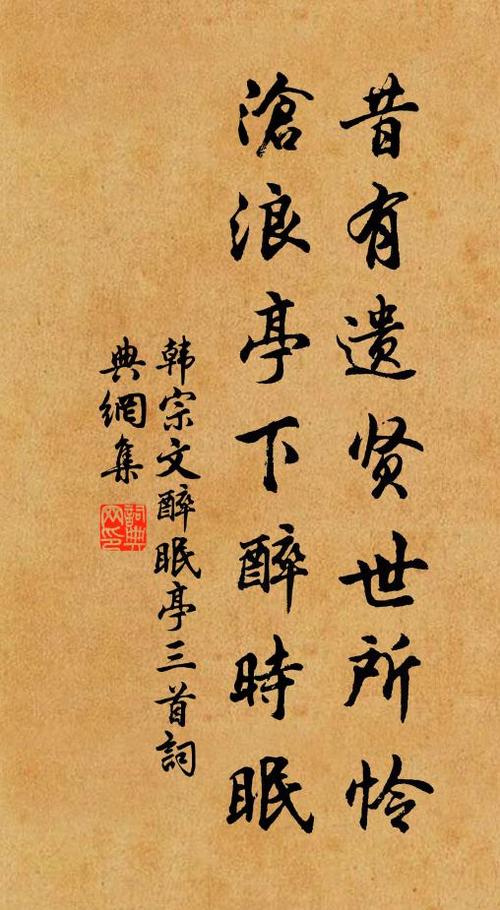 昔有遗贤世所怜
滄浪亭下醉時眠
韩宗文醉眠亭三首詞
典網集
詞典網印